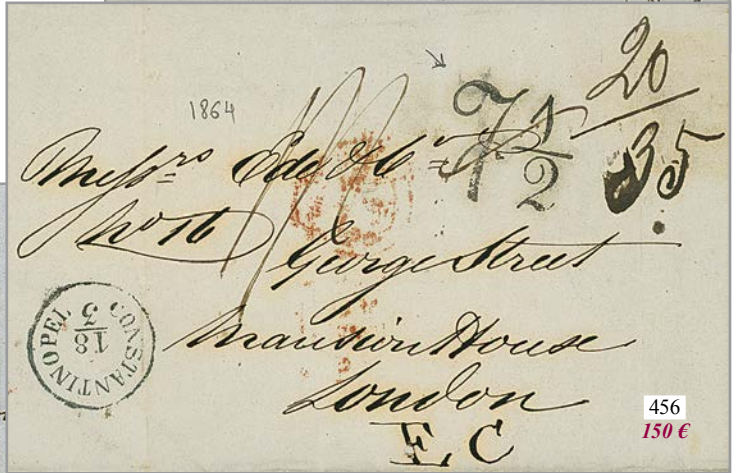 20
35
7 1/2
1864
Messrs Ede & Co
No 16
George Street
Mansion House
London
E, C
CONSTANTINOPEL
18
3
456
150 €